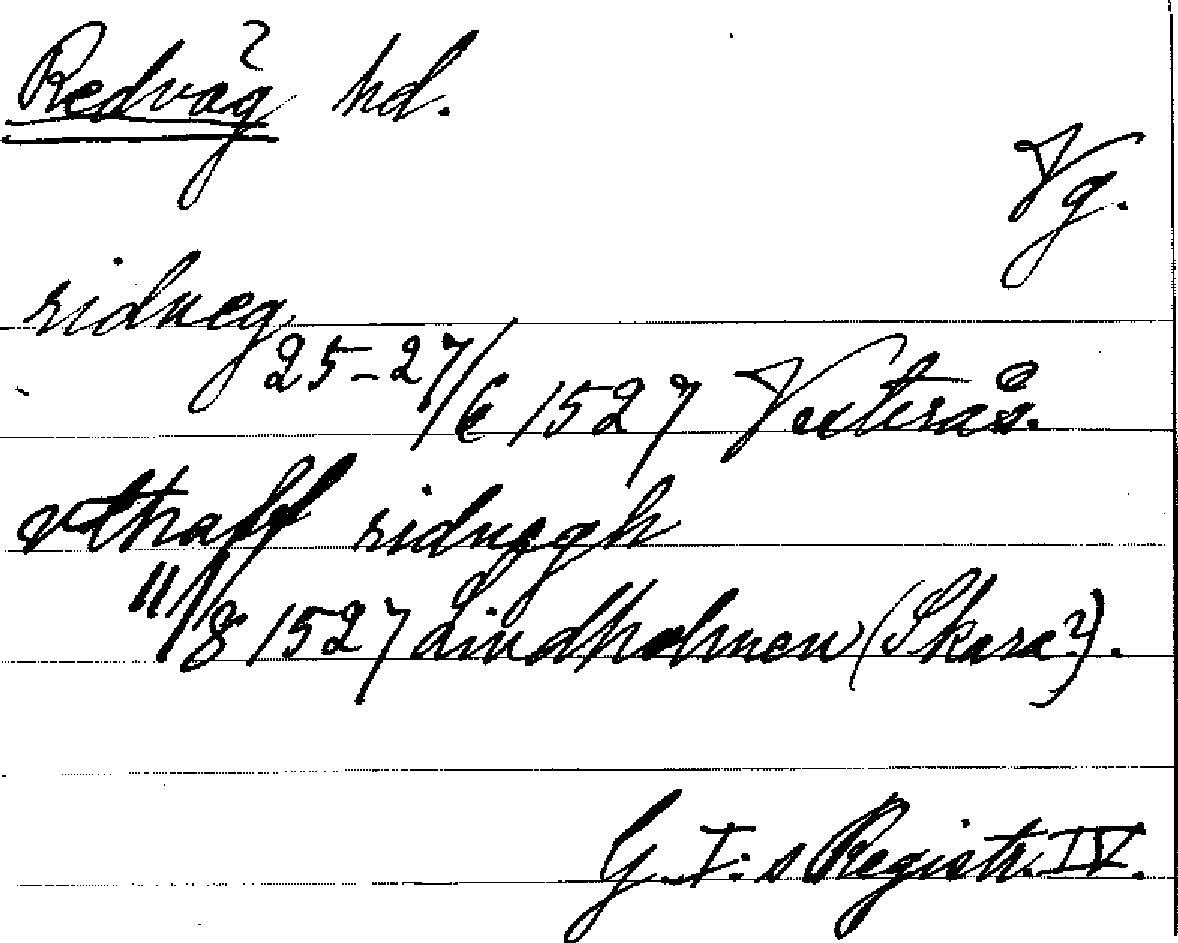 Redväg hd.
Vg.
ridueg
25-27/6 1527 Västerås.
vthaff ridueggh
11/8 1527 Lindholmen (Skara?).
G. I:s Registr. IV.